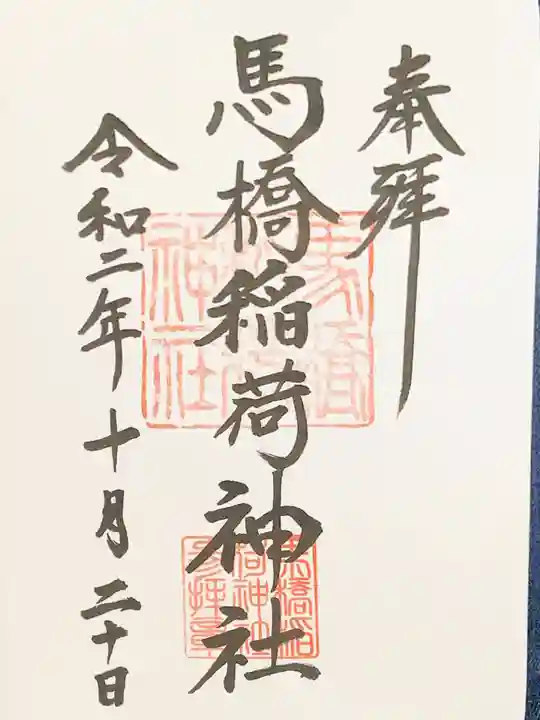 奉拜
馬橋稲荷神社
令和二年十月二十日
馬橋
神社
馬橋稲
荷神社
参拝